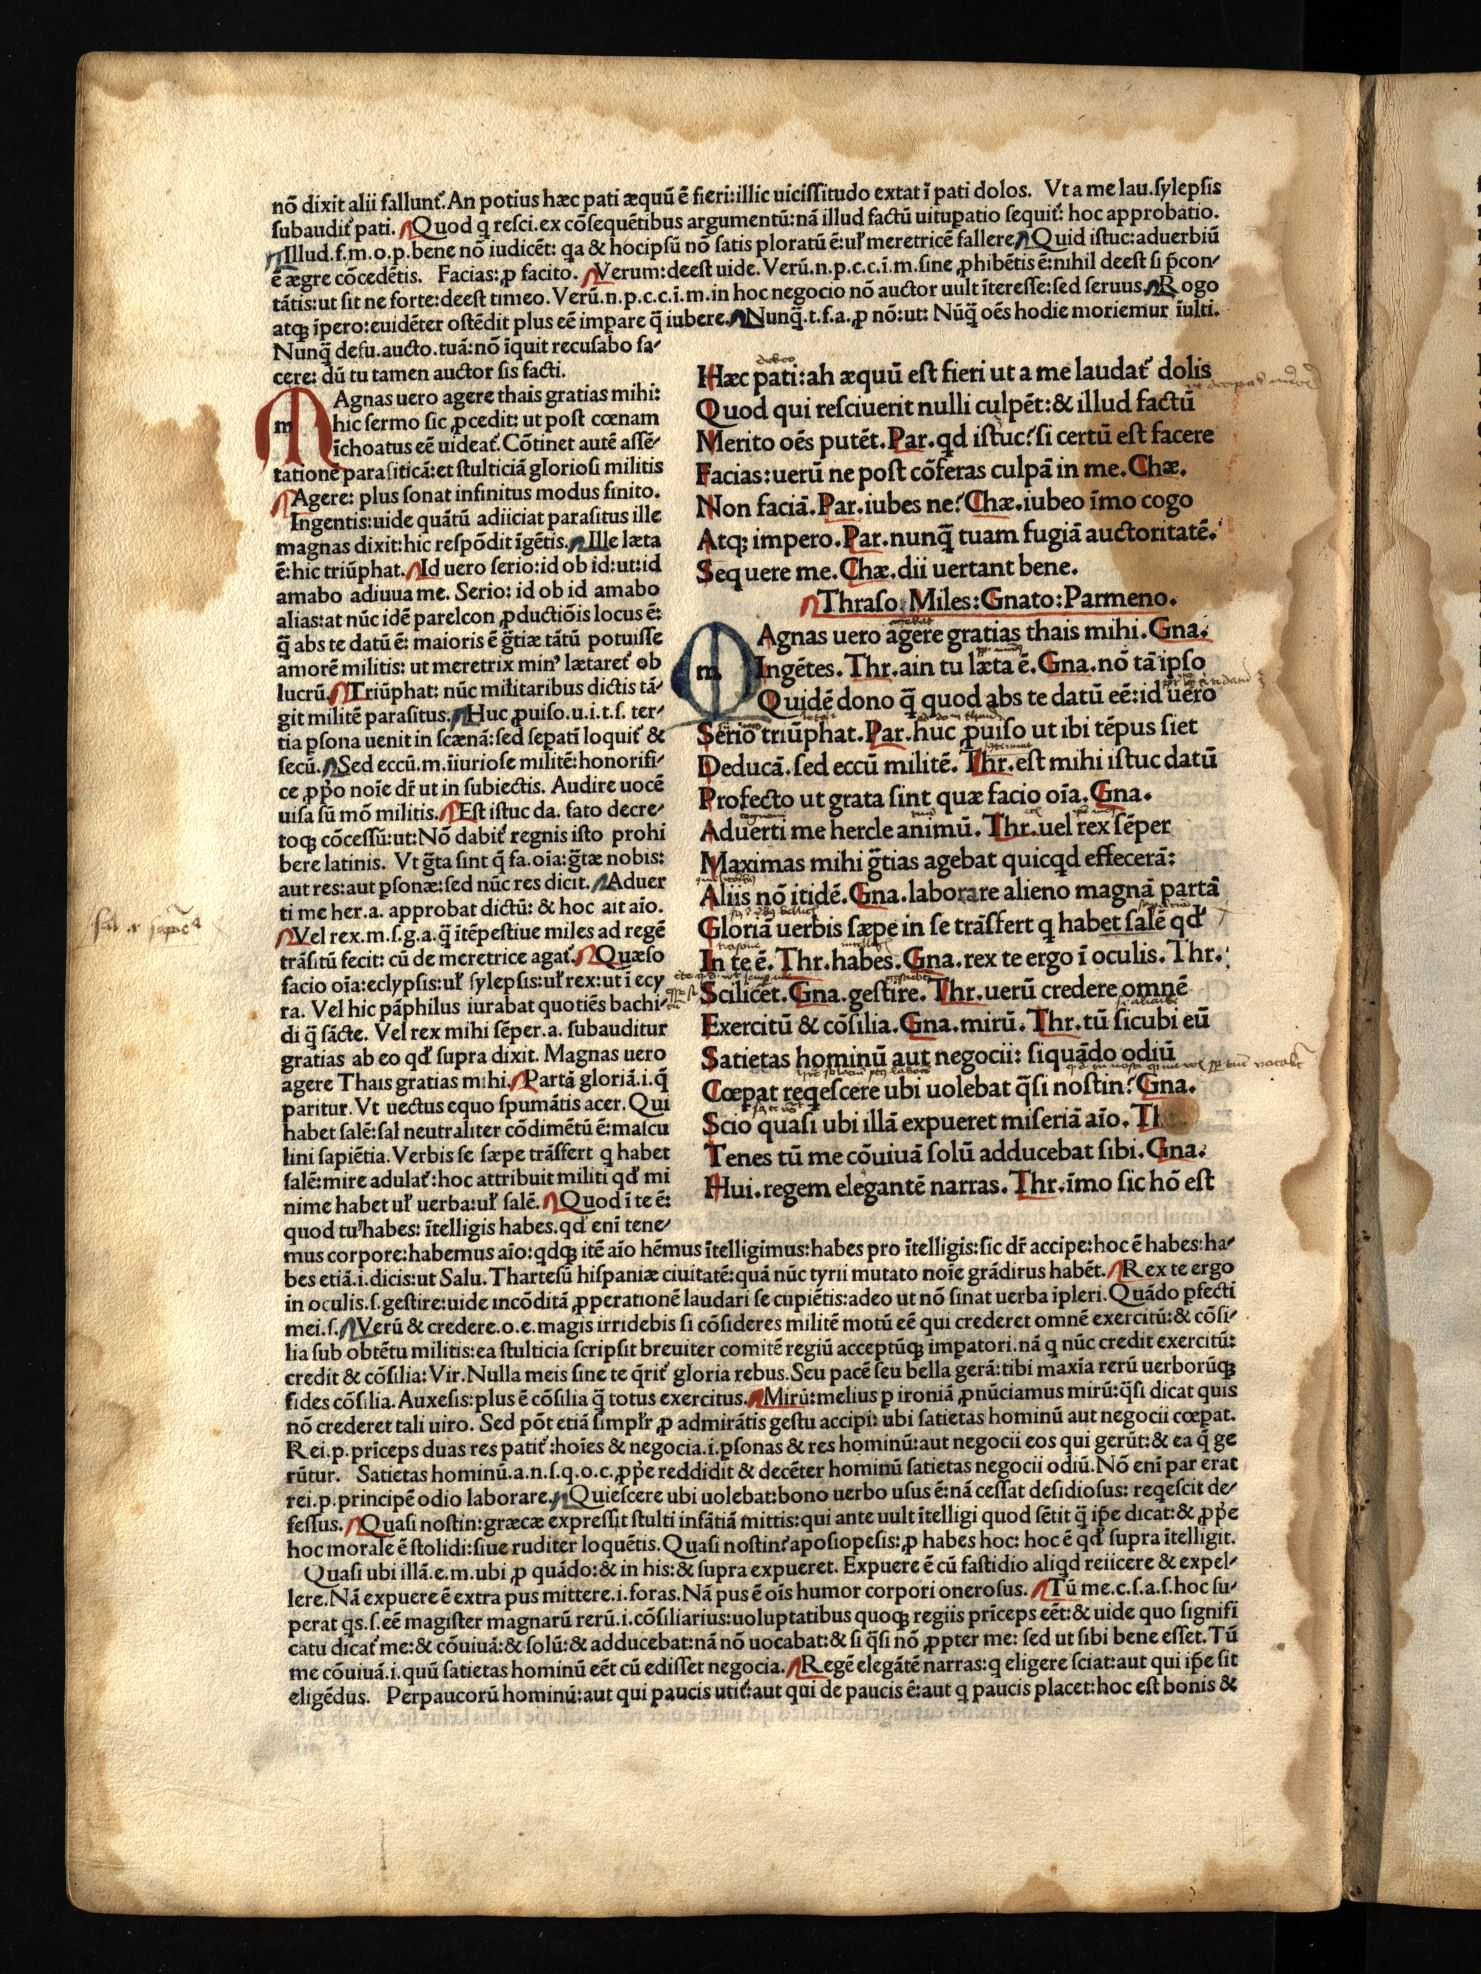 nō dixit alii fallunt᷑. An potius hæc pati æquū ē fieri: illic uicissitudo extat ī pati dolos. Vt a me lau. sylepsis
subaudit᷑ pati. Quod q resci. ex cōsequētibus argumentū: nā illud factū uituꝑatio sequit᷑: hoc approbatio.
Illud. f. m. o. p. bene nō iudicēt: qa & hocipsū nō satis ploratū ē: ul᷑ meretricē fallere. Quid istuc: aduerbiū
ē ægre cōcedētis. Facias: ꝓ facito. Verum: deest uide. Verū. n. p. c. c. i. m. sine ꝓhibētis ē: nihil deest si p̄con-
tātis: ut sit ne forte: deest timeo. Verū. n. p. c. c. i. m. in hoc negocio nō auctor uult īteresse: sed seruus. Rogo
atqꝫ īpero: euidēter ostēdit plus eē impare q̄ iubere. Nunq̄. t. f. a. ꝓ nō: ut: Nūq̄ oēs hodie moriemur īulti.
Nunq̄ defu. aucto. tuā: nō īquit recusabo fa-
cere: dū tu tamen auctor sis facti.
mAgnas uero agere thais gratias mihi:
hic sermo sic ꝓcedit: ut post cœnam
īchoatus eē uideat᷑. Cōtinet autē assē-
tationē parasiticā: et stulticiā gloriosi militis
Agere: plus sonat infinitus modus finito.
Ingentis: uide quātū adiiciat parasitus ille
magnas dixit: hic respōdit īgētis. Ille læta
ē: hic triūphat. Id uero serio: id ob id: ut: id
amabo adiuua me. Serio: id ob id amabo
alias: at nūc idē parelcon ꝓductiōis locus ē:
q̄ abs te datū ē: maioris ē g̅tiæ tātū potuisse
amorē militis: ut meretrix min᾽ lætaret᷑ ob
lucrū. Triūphat: nūc militaribus dictis tā-
git militē parasitus. Huc ꝓuiso. u. i. t. s. ter-
tia ꝑsona uenit in scænā: sed seꝑatī loquit᷑ &
secū. Sed eccū. m. īiuriose militē: honorifi-
ce ꝓp̄o noīe dr̄ ut in subiectis. Audire uocē
uisa sū mō militis. Est istuc da. fato decre-
toqꝫ cōcessū: ut: Nō dabit᷑ regnis isto prohi
bere latinis. Vt g̅ta sint q̄ fa. oīa: g̅tæ nobis:
aut res: aut ꝑsonæ: sed nūc res dicit. Aduer
ti me her. a. approbat dictū: & hoc ait aīo.
Vel rex. m. s. g. a. q̄ ītēpestiue miles ad regē
trāsitū fecit: cū de meretrice agat᷑. Quæso
facio oīa: eclypsis: ul᷑ sylepsis: ul᷑ rex: ut ī ecy
ra. Vel hic pāphilus iurabat quotiēs bachi-
di q̄ sācte. Vel rex mihi sēper. a. subauditur
gratias ab eo qd᷑ supra dixit. Magnas uero
agere Thais gratias mihi. Partā gloriā. i. q̄
paritur. Vt uectus equo spumātis acer. Qui
habet salē: sal neutraliter cōdimētū ē: mascu
lini sapiētia. Verbis se sæpe trāsfert q habet
salē: mire adulat᷑: hoc attribuit militi qd᷑ mi
nime habet ul᷑ uerba: ul᷑ salē. Quod ī te ē:
quod tu habes: ītelligis habes. qd᷑ enī tene-
Hæc pati: ah æquū est fieri ut a me laudat᷑ dolis
Quod qui resciuerit nulli culpēt: & illud factū
Merito oēs putēt. Par. qd istuc? si certū est facere
Facias: uerū ne post cōferas culpā in me. Chæ.
Non faciā. Par. iubes ne? Chæ. iubeo īmo cogo
Atqꝫ impero. Par. nunq̄ tuam fugiā auctoritatē.
Sequere me. Chæ. dii uertant bene.
Thraso Miles: Gnato: Parmeno.
mAgnas uero agere gratias thais mihi. Gna.
Ingētes. Thr. ain tu læta ē. Gna. nō tā ipso
Quidē dono q̄ quod abs te datū eē: id uero
Serio triūphat. Par. huc ꝓuiso ut ibi tēpus siet
Deducā. sed eccū militē. Thr. est mihi istuc datū
Profecto ut grata sint quæ facio oīa. Gna.
Aduerti me hercle animū. Thr. uel rex sēper
Maximas mihi g̅tias agebat quicqd effecerā:
Aliis nō itidē. Gna. laborare alieno magnā partā
Gloriā uerbis sæpe in se trāsfert q habet salē qd᷑
In te ē. Thr. habes. Gna. rex te ergo ī oculis. Thr.
Scilicet. Gna. gestire. Thr. uerū credere omnē
Exercitū & cōsilia. Gna. mirū. Thr. tū sicubi eū
Satietas hominū aut negocii: siquādo odiū
Cœpat reqescere ubi uolebat q̄si nostin? Gna.
Scio quasi ubi illā expueret miseriā aīo. Th
Tenes tū me cōuiuā solū adducebat sibi. Gna.
Hui. regem elegantē narras. Thr. īmo sic hō est
mus corpore: habemus aīo: qdqꝫ itē aīo hēmus ītelligimus: habes pro ītelligis: sic dr̄ accipe: hoc ē habes: ha-
bes etiā. i. dicis: ut Salu. Thartesū hispaniæ ciuitatē: quā nūc tyrii mutato noīe grādirus habēt. Rex te ergo
in oculis. s. gestire: uide incōditā ꝓperationē laudari se cupiētis: adeo ut nō sinat uerba īpleri. Quādo ꝑfecti
mei. s. Verū & credere. o. e. magis irridebis si cōsideres militē motū eē qui crederet omnē exercitū: & cōsi-
lia sub obtētu militis: ea stulticia scripsit breuiter comitē regiū acceptūqꝫ imꝑatori. nā q nūc credit exercitū:
credit & cōsilia: Vir. Nulla meis sine te q̄rit᷑ gloria rebus. Seu pacē seu bella gerā: tibi maxīa rerū uerborūqꝫ
fides cōsilia. Auxesis: plus ē cōsilia q̄ totus exercitus. Mirū: melius ꝑ ironiā ꝓnūciamus mirū: q̄si dicat quis
nō crederet tali uiro. Sed pōt etiā simpl᷑r ꝓ admirātis gestu accipi: ubi satietas hominū aut negocii cœpat.
Rei. p. prīceps duas res patit᷑: hoīes & negocia. i. ꝑsonas & res hominū: aut negocii eos qui gerūt: & ea q̄ ge
rūtur. Satietas hominū. a. n. s. q. o. c. ꝓp̄e reddidit & decēter hominū satietas negocii odiū. Nō enī par erat
rei. p. principē odio laborare. Quiescere ubi uolebat: bono uerbo usus ē: nā cessat desidiosus: reqescit de-
fessus. Quasi nostin: græcæ expressit stulti infātiā mittis: qui ante uult ītelligi quod sētit q̄ ip̄e dicat: & ꝓp̄e
hoc morale ē stolidi: siue ruditer loquētis. Quasi nostin? aposiopesis: ꝓ habes hoc: hoc ē qd᷑ supra ītelligit.
Quasi ubi illā. e. m. ubi ꝓ quādo: & in his: & supra expueret. Expuere ē cū fastidio aliqd reiicere & expel-
lere. Nā expuere ē extra pus mittere. i. foras. Nā pus ē oīs humor corpori onerosus. Tū me. c. s. a. s. hoc su-
perat qs. s. eē magister magnarū rerū. i. cōsiliarius: uoluptatibus quoqꝫ regiis prīceps eēt: & uide quo signifi
catu dicat᷑ me: & cōuiuā: & solū: & adducebat: nā nō uocabat: & si q̄si nō ꝓpter me: sed ut sibi bene esset. Tū
me cōuiuā. i. quū satietas hominū eēt cū edisset negocia. Regē elegātē narras: q eligere sciat: aut qui ip̄e sit
eligēdus. Perpaucorū hominū: aut qui paucis utit᷑: aut qui de paucis ē: aut q paucis placet: hoc est bonis &